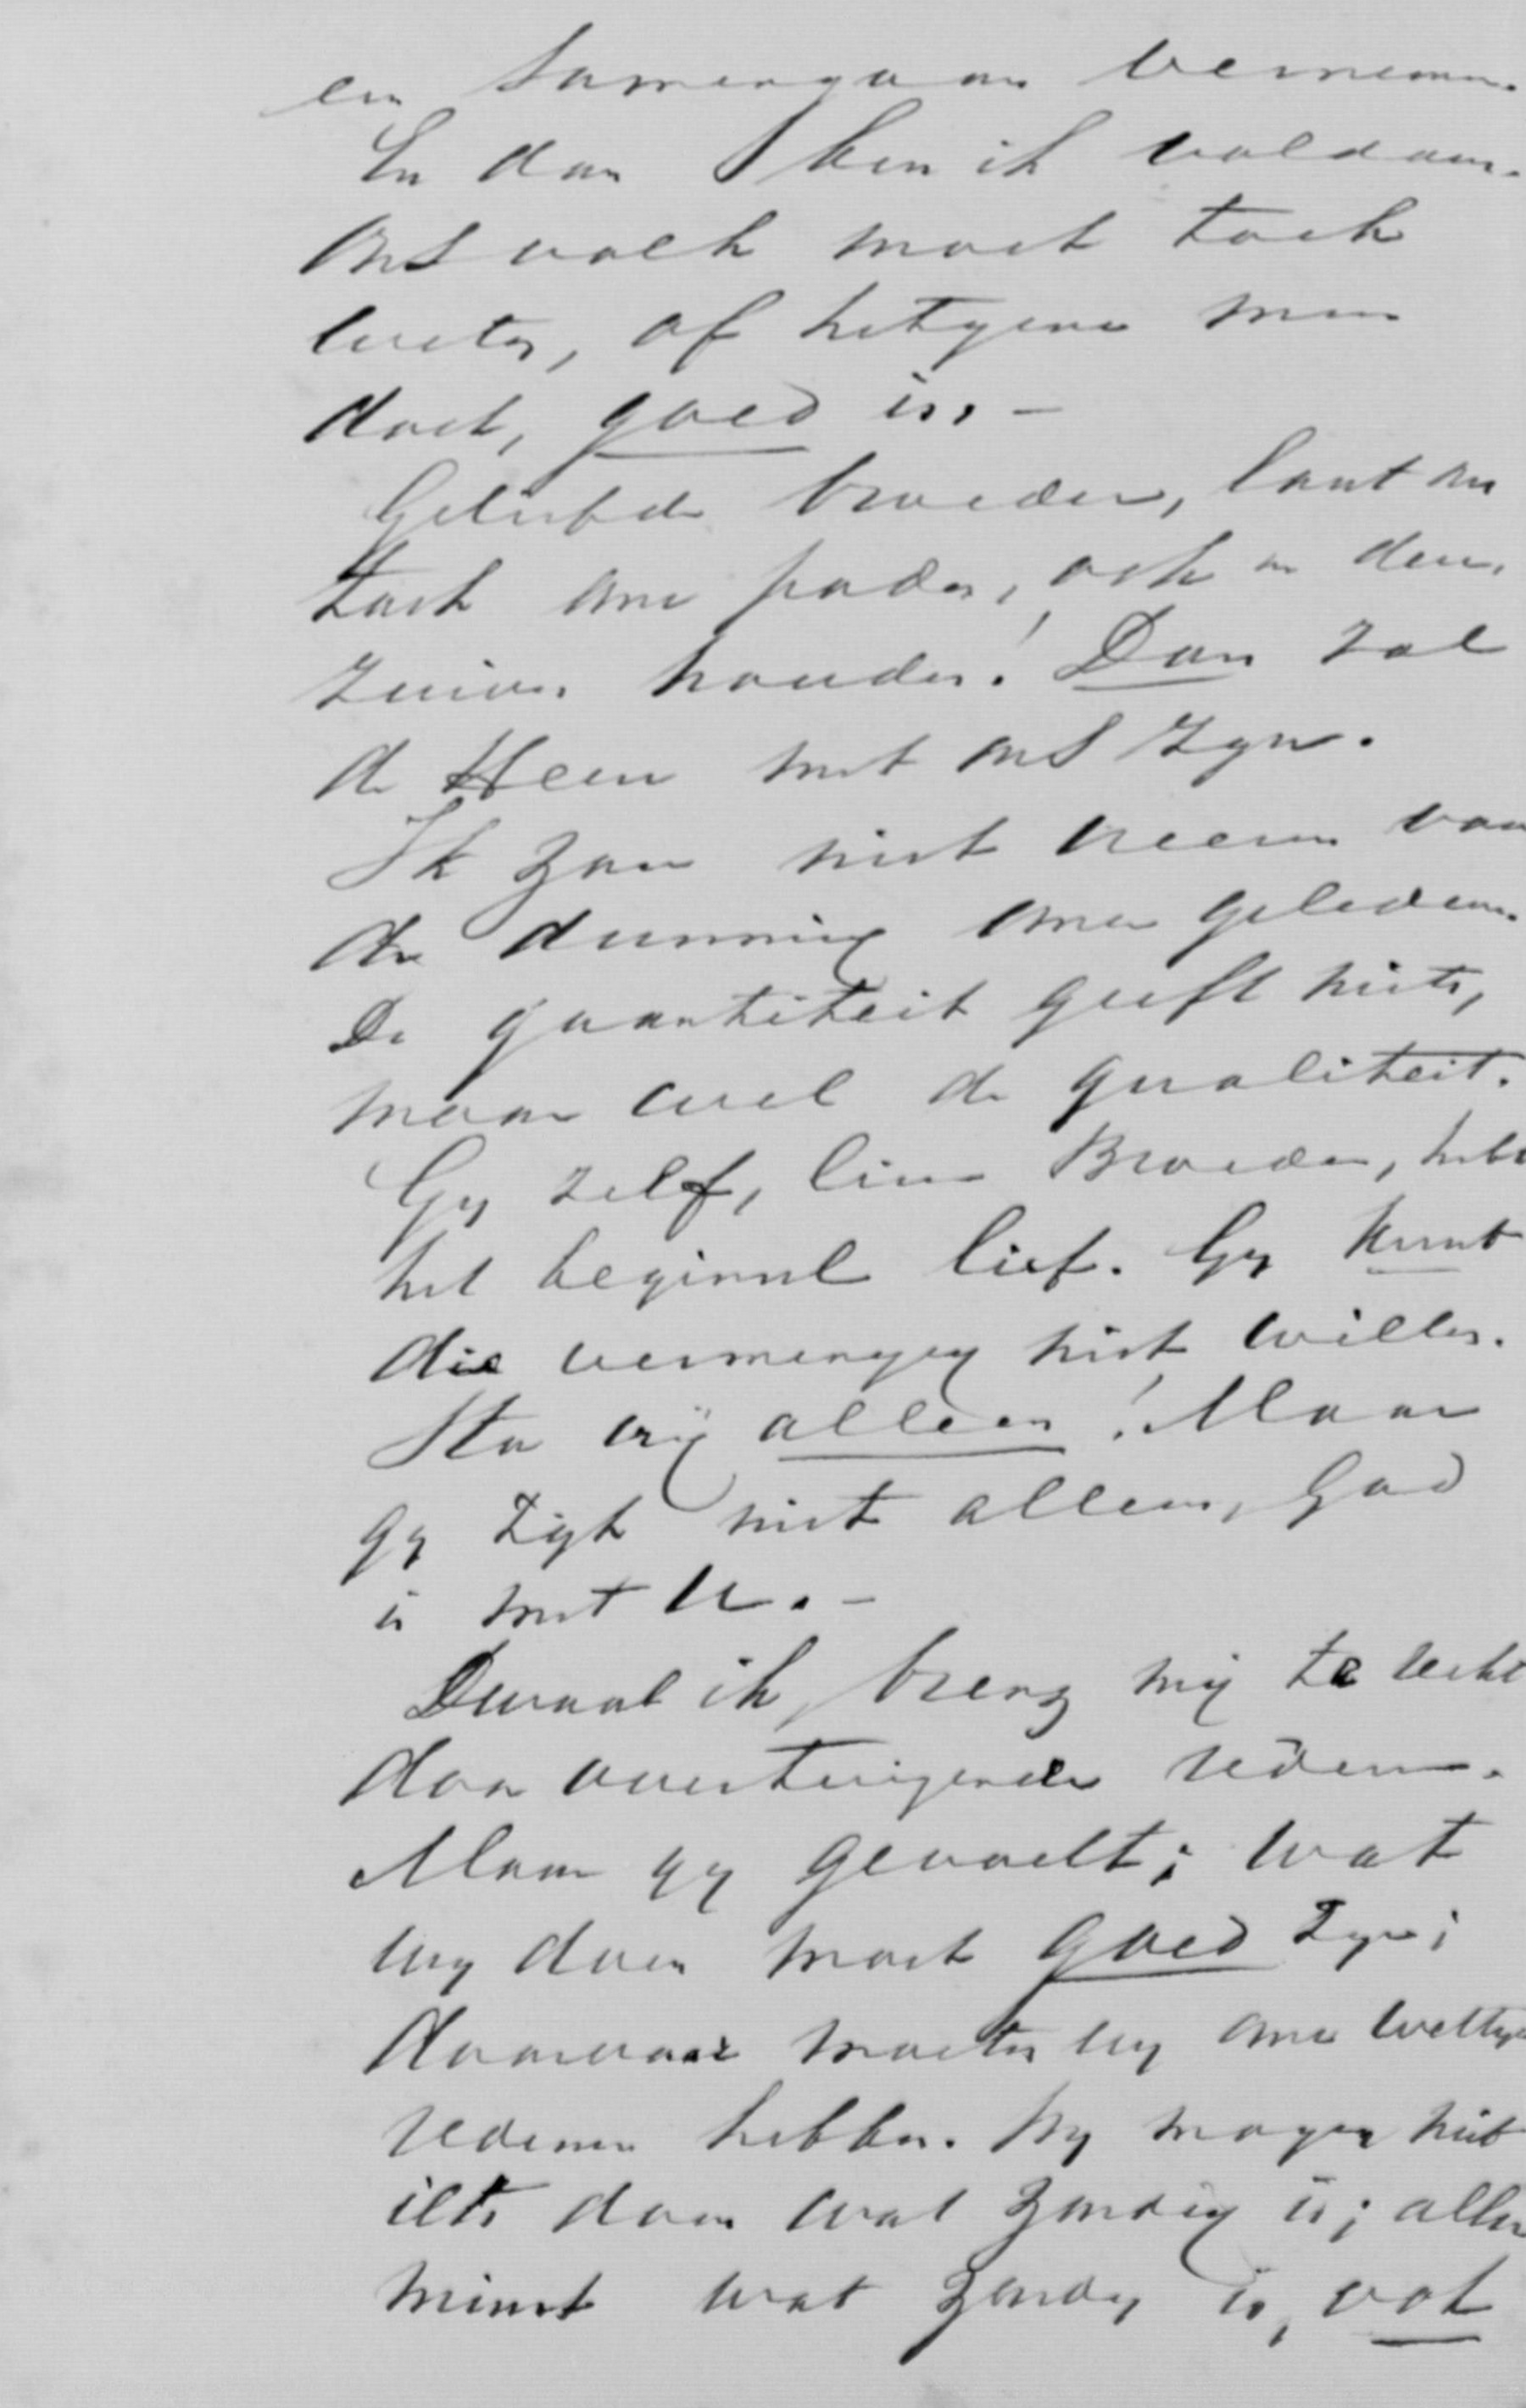 een Samengaan vernemen.
En dan ben ik voldaan.
Ons volk moet toch
weten, of hetgene men
doet, goed is. –
Geliefde broeder, laat ons
toch onze paden, ook in dezen,
zuiver houden! Dan zal
de Heer met ons zijn.
Ik zou niet vreezen voor
de dunning onzer gelederen.
De quantiteit geeft niets,
maar wel de qualiteit.
Gy zelf, lieve Broeder, hebt
het beginsel lief. Gy kunt
die vermenging niet willen.
Sta vrij alleen! Maar
gy zijt niet alleen, God
is met U. –
Dwaal ik, breng mij te recht
door overtuigende redenen.
Maar gy gevoelt; wat
wy doen moet goed zyn;
daarvoor moeten wy onze wettige
redenen hebben. Wy mogen niet
iets doen wat zondig is; aller
minst wat zondig is, ook